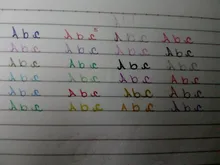 Abc Abc Abc Abc
Abc Abc Abc Abc
Abc Abc Abc Abc
Abc Abc Abc Abc
Abc Abc Abc Abc
Abc Abc Abc Abc